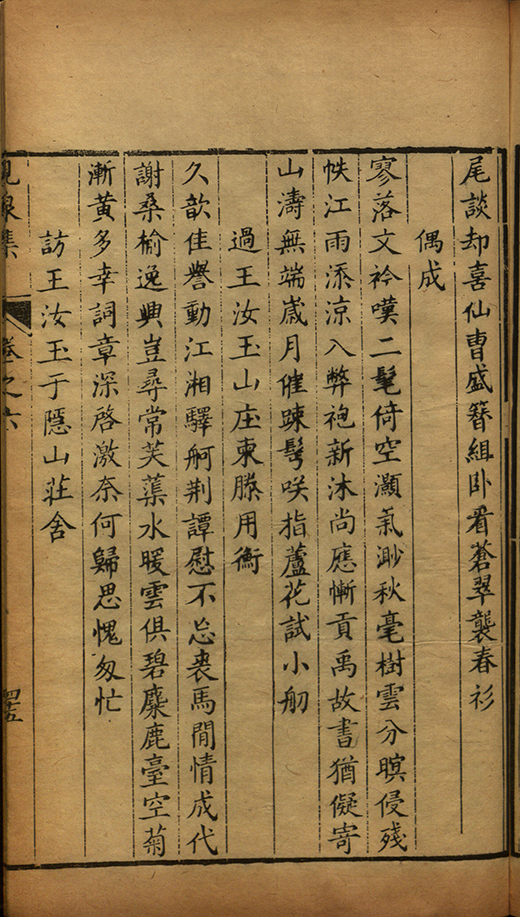 尾談却喜仙曹盛簪組卧看蒼翠襲春衫
偶成
寥落文衿嘆二毛倚空灝氣渺秋毫樹雲分暝侵殘
帙江雨添涼入弊袍新沐尚應慚貢禹故書猶儗寄
山濤無端歲月催疎髩咲指蘆花試小舠
過王汝玉山庄柬滕用衡
久歆佳譽動江湘驛舸荆譚慰不忘裘馬間情成代
謝桑榆逸興豈尋常芙蕖水暖雲俱碧麋鹿臺空菊
漸黄多幸詞章深啓激奈何歸思愧匆忙
訪王汝玉于隱山莊舍
集 卷之六 四五